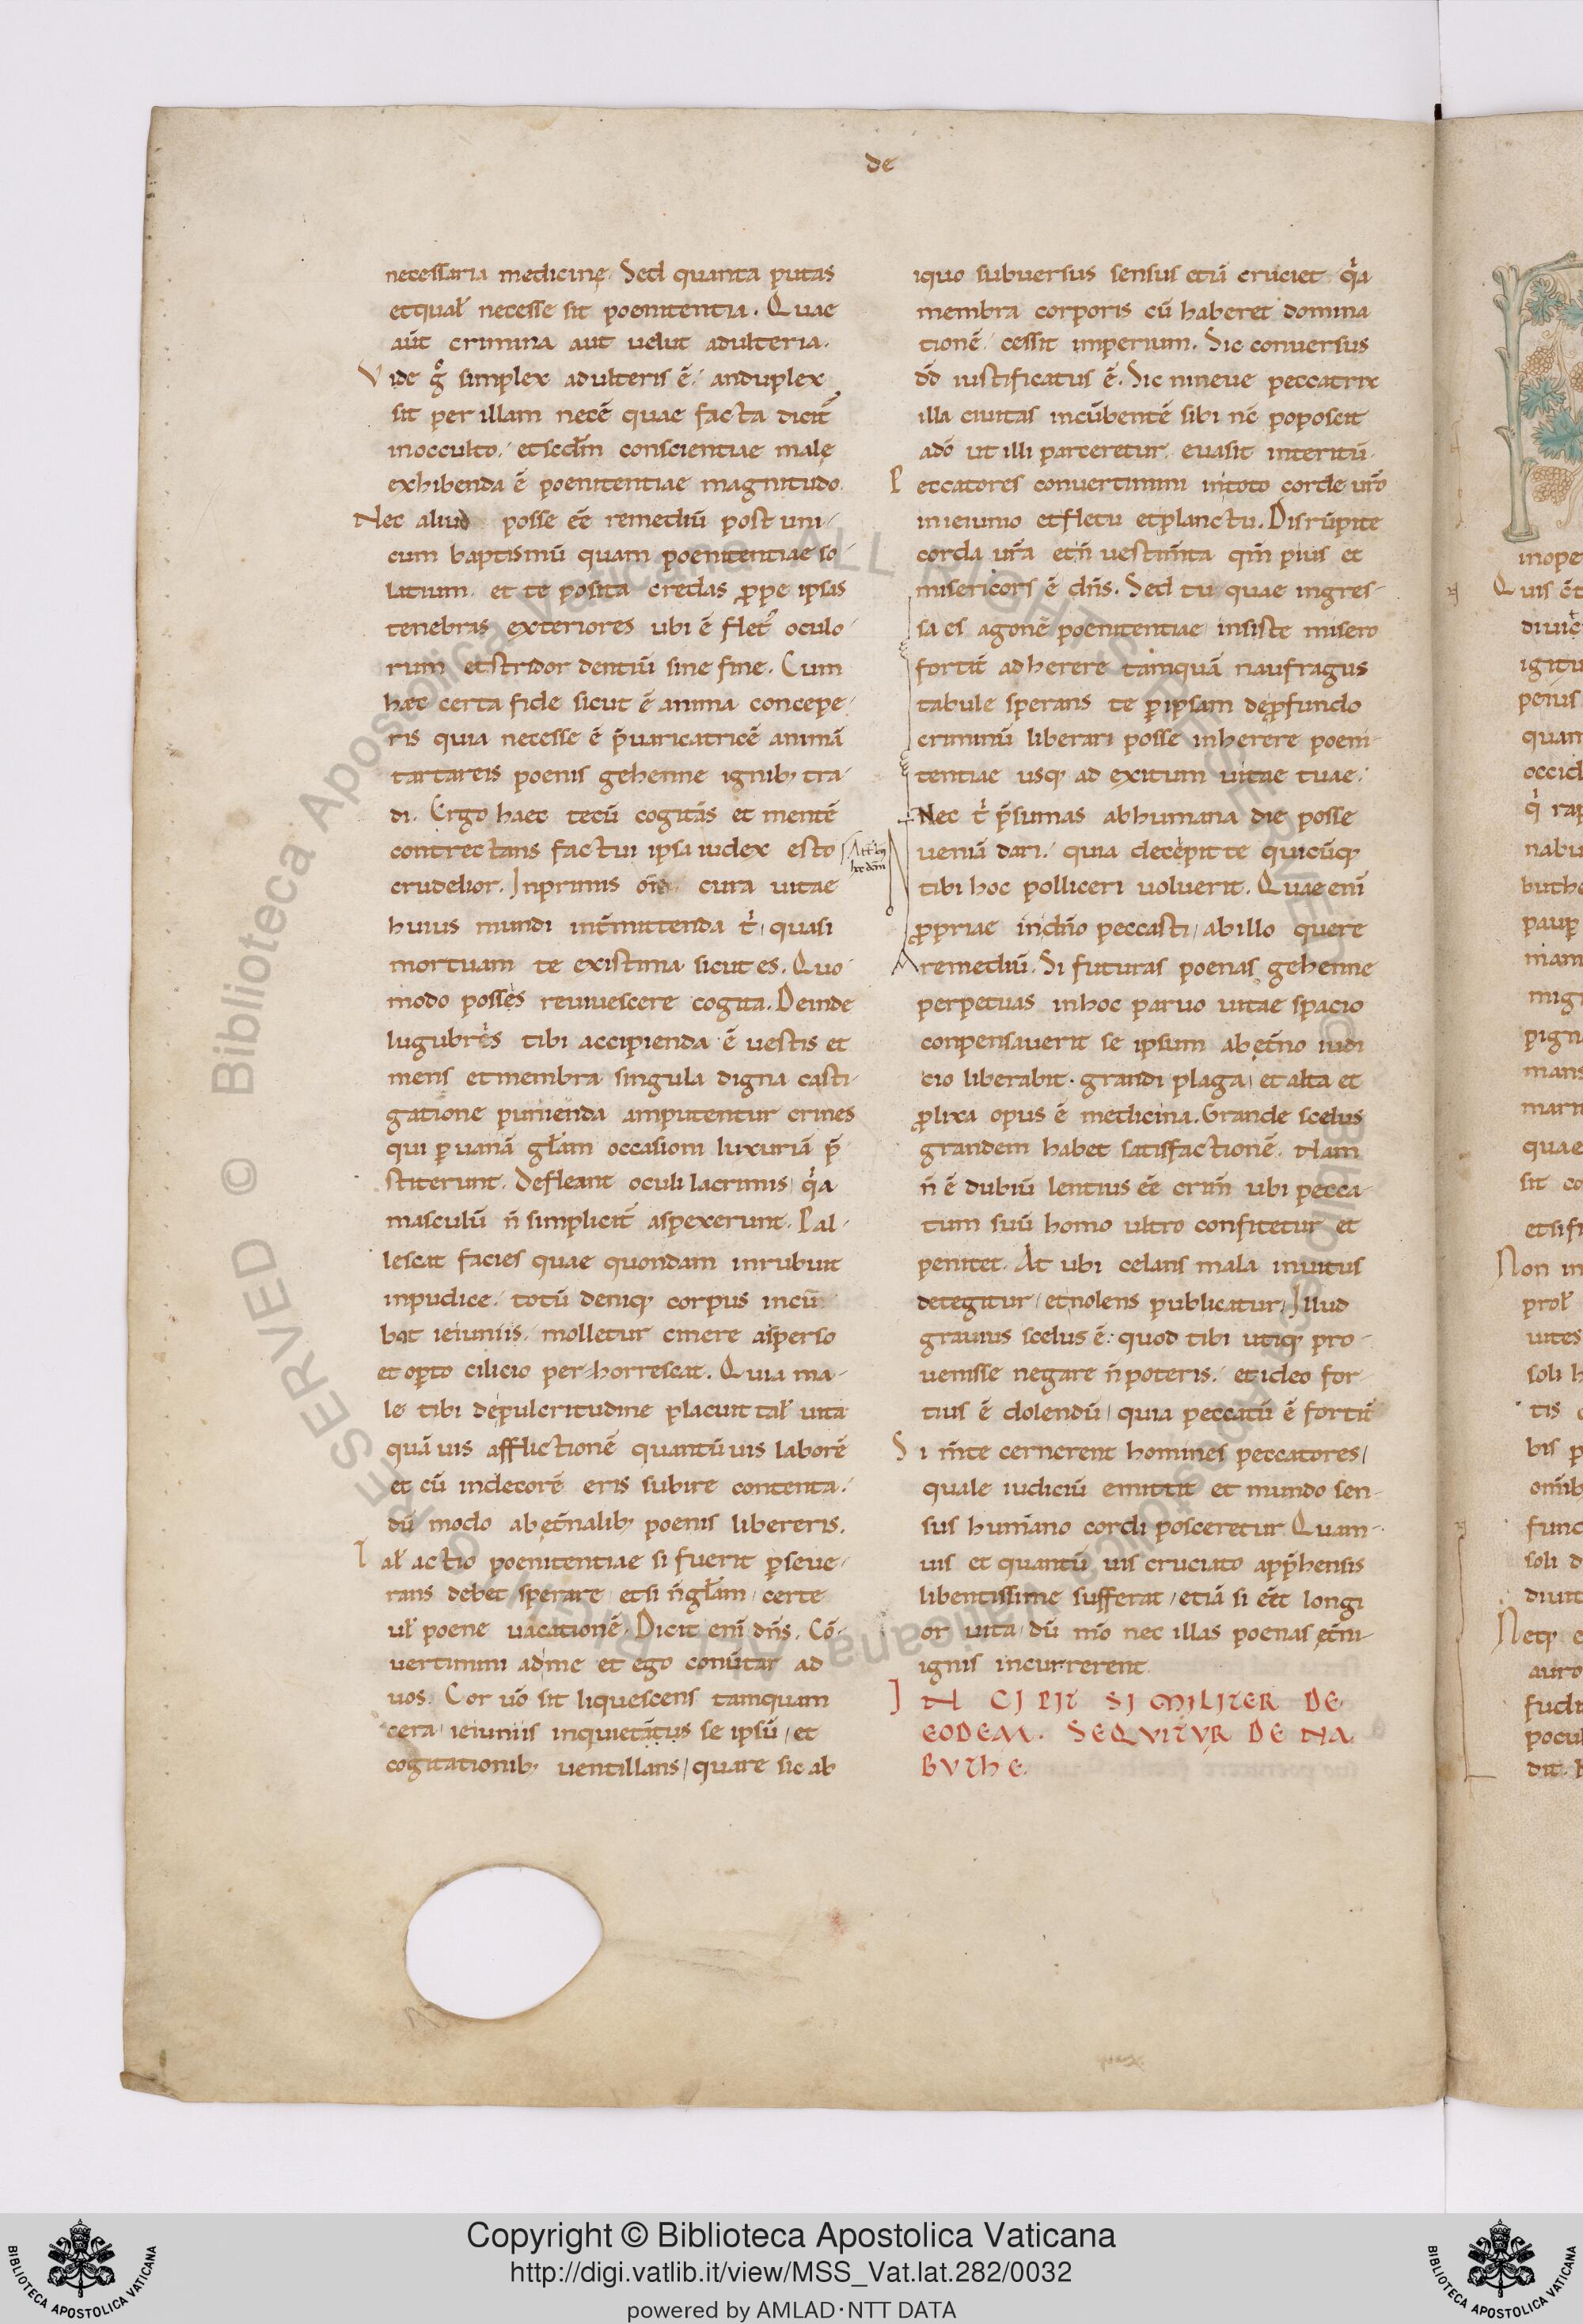 de
necessaria medicinę. Sed quanta putas
et qual̄ necesse sit poenitentia. Quae
aūt crimina aut uelut adulteria.
Vide gͦ simplex adulteris ē. an duplex
sit per illam necē quae facta dicit̃
in occulto. et scdm̄ conscientiae malę
exhibenda ē poenitentiae magnitudo.
Nec aliud posse ēe remediū post uni-
cum baptismū quam poenitentiae so-
latium. et te posita credas ꝓpe ipsas
tenebras exteriores ubi ē flet᷒ oculo-
rum et stridor dentiū sine fine. Cum
haec certa fide sicut ē anima concepe-
ris quia necesse ē p̄uaricatricē animā
tartareis poenis gehenne ignib; tra-
di. Ergo haec tecū cogitās et mentē
contrectans factui ipsa iudex esto
crudelior. Inprimis om̄s cura uitae
huius mundi int̄mittenda ē. quasi
mortuam te existima sicut es. Quo-
modo posses reuiuescere cogita. Deinde
lugubres tibi accipienda ē uestis et
mens et membra singula digna casti-
gatione punienda amputentur crines
qui ꝑ uanā gl̄am occasioni luxuriā p̄-
stiterunt. Defleant oculi lacrimis qͥa
masculū n̄ simplicit̄ aspexerunt. Pal-
lescat facies quae quondam inrubuit
inpudice. totū deniq; corpus incū-
bat ieiuniis. molletur cinere asperso
et opto cilicio per-horrescat. Quia ma-
le tibi de pulcritudine placuit tal̄ uita
quā uis afflictionē quantū uis laborē
et cū indecorē eris subire contenta.
dū modo ab ęt̄nalib; poenis libereris.
Tal̄ actio poenitentiae si fuerit ꝑseue-
rans debet sperare et si n̄ gl̄am certe
ul̄ poene uacationē. Dicit enī dn̄s. Cō-
uertimini ad me et ego conūtar ad
uos. Cor ūo sit liquescens tamquam
cera ieiuniis inquietātus se ipsū, et
cogitationib; uentillans, quare sic ab
iquo subuersus sensus etiā cruciet qͥa
membra corporis cū haberet domina
tionē. cessit imperium. Sic conuersus
dd̄ iustificatus ē. Sic nineue peccatrix
illa ciuitas incūbentē sibi nēc poposcit
a dō ut illi parceretur. euasit interitū.
Peccatores conuertimini in toto corde ur̄o
in ieiunio et fletu et planctu. Disrūpite
corda ur̄a et n̄ uestim̄ta qm̄ pius et
misericors ē dn̄s. Sed tu quae ingres-
sa es agonē poenitentiae insiste misero
fortit̄ adherere tamquā naufragus
tabule sperans te ꝑ ipsam de ꝓfundo
criminū liberari posse inherere poeni-
tentiae usq; ad exitum uitae tuae.
Nec t̄ p̄sumas ab humana die posse
ueniā dari. quia decepit te quicūq;
tibi hoc polliceri uoluerit. Quae enī
ꝓpriae in dn̄o peccasti, ab illo quere
remediū. Si futuras poenas gehenne
perpetuas in hoc paruo uitae spacio
conpensauerit se ipsum ab ęt̄no iudi
cio liberabit. grandi plaga, et alta et
ꝓlixa opus ē medicina. Grande scelus
grandem habet satisfactionē. Nam
n̄ ē dubiū lentius ēe crim̄ ubi pecca-
tum suū homo ultro confitetur et
penitet. At ubi celans mala inuitus
detegitur, et nolens publicatur, Illud
grauius scelus ē: quod tibi utiq; pro-
uenisse negare n̄ poteris. et ideo for-
tius ē dolendū, quia peccatū ē fortit̄
Si m̄te cernerent homines peccatores,
quale iudiciū emittit et mundo sen-
sus humano cordi posceretur Quam-
uis et quantū uis cruciato app̄hensis
libentissime sufferat, etiā si ēet longi
or uita, dū m̄o nec illas poenas ęt̄ni-
ignis incurrerent
INCIPIT SIMILITER DE
EODEM. SEQVITVR DE NA
BVTHE.
Copyright © Biblioteca Apostolica Vaticana
http://digi.vatlib.it/view/MSS_Vat.lat.282/0032
powered by AMLAD·NTT DATA
BIBLIOTECA APOSTOLICA VATICANA
BIBLIOTECA APOSTOLICA VATICANA